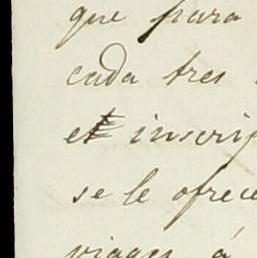 que para
cada tres
et inscrip
se le ofrece
viages á